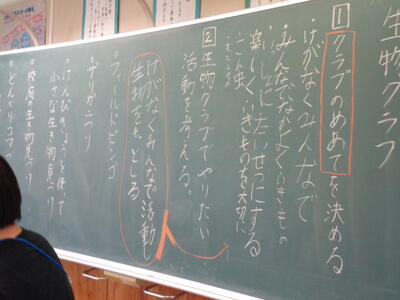 生物クラブ
1 クラブのめあてを決める
・けがなくみんなで
・みんなでなかよくいきもの
・いっしょに たいせつにする
楽しくいきものを大切に
こん虫
2 生物クラブでやりたい
活動を考える。
けがなくみんなで活動し
生物を
・フィールドビンゴ
・ザリガニつり
・けんびきょうを使って
小さな生き物見つけ
・校庭の生き物見つけ
・どんぐりコマ